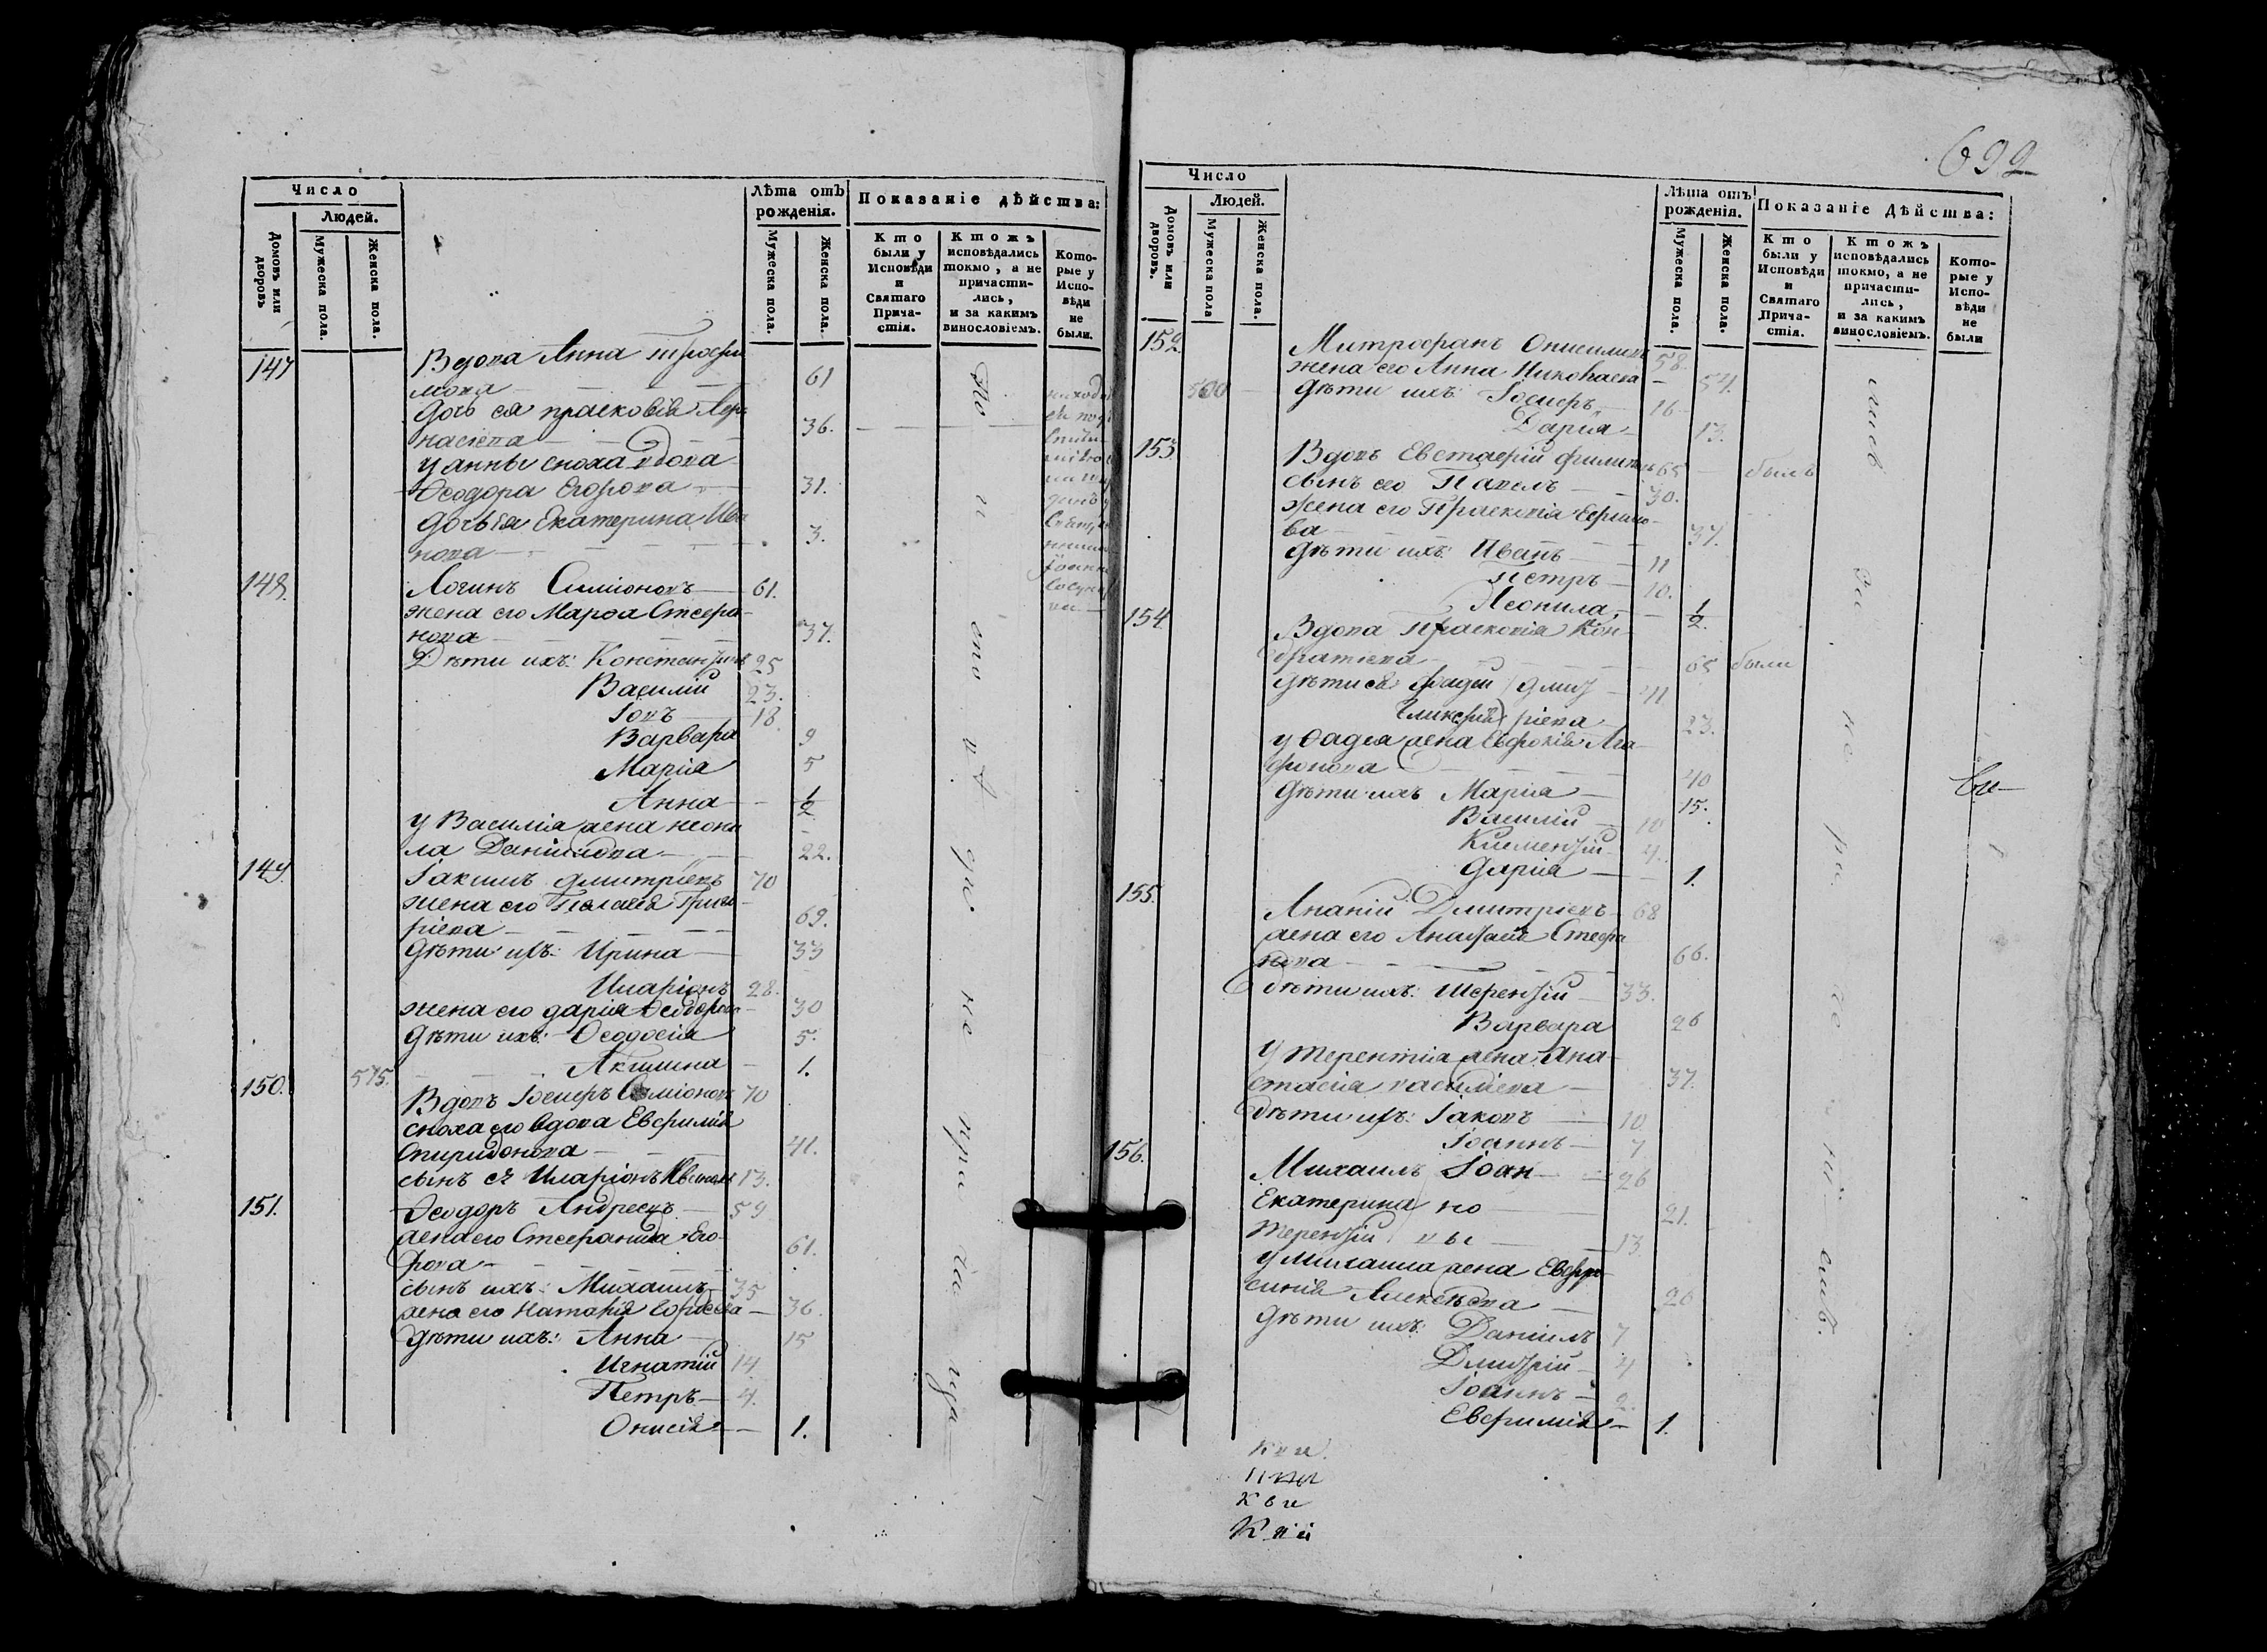 692
Число
Людей.
Домовъ или дворовъ
Мужеска пола.
Женска пола.
Лѣта отъ рожденія.
Мужеска пола.
Женска пола.
Показаніе дѣйства:
Кто были у Исповѣди и Святаго Прича-стія.
Ктожъ исповѣдались токмо, а не причасти-лись, и за какимъ винословіемъ.
Кото-рые у Испо-вѣди не были.
147
Вдова Анна
61
дочь ея Прасковія
36.
у Анны сноха вдова
Ѳеодора Егорова 31.
дочь ея Екатерина Ива
нова 3.
148. Логинъ Симіоновъ 61.
жена его Марѳа Стефа-
нова 37.
Дѣти ихъ: Константинъ 25
Василій 23.
Іовъ 18
Варвара 9
Марія 5
Анна 1/2
у Василія жена Неони
ла Даніилова 22.
149. Іакимъ Дмитріевъ 70
жена его Пелагея Григо-
ріева 69.
дѣти ихъ: Ирина 33
Иларіонъ 28.
жена его Дарія Ѳеодорова 30
дѣти ихъ: Ѳеодосія 5.
575. Акилина 1.
150. Вдовъ Іосифъ Симіоновъ 70
сноха его вдова Евфимія
Спиридонова 41.
сынъ ея Иларіонъ 13.
151. Ѳеодоръ Андреевъ 59
жена его Стефанида Его-
рова 61.
сынъ ихъ: Михаилъ 35
жена его Наталія 36.
дѣти ихъ: Анна 15
Игнатій 14.
Петръ 4.
Онисія 1.
Число
Людей.
Домовъ или дворовъ.
Мужеска пола
Женска пола.
Лѣта отъ рожденія.
Мужеска пола.
Женска пола.
Показаніе дѣйства:
Кто были у Исповѣди и Святаго Прича-стія.
Ктожъ исповѣдались токмо, а не причасти-лись, и за какимъ винословіемъ.
Кото-рые у Испо-вѣди не были
152. Митрофанъ Онисимовъ 58.
жена его Анна Николаева 54.
500 дѣти ихъ: Іосифъ 16
Дарія 13.
153. Вдовъ Евстафій Филиповъ 65 былъ
сынъ его Павелъ 30.
жена его Прасковія Ефимо-
ва 37.
дѣти ихъ: Иванъ 11
Петръ 10.
Неонила 1/2
154. Вдова Прасковія Кон-
дратіева 65 были
дѣти ея Фадей Дмит 41
Гликерія ріева 23.
у Фадея жена Евдокія Ага-
фонова 40
дѣти ихъ Марія 15.
Василій 10
Климентій 4.
Дарія 1.
155. Ананій Дмитріевъ 68
жена его Анастасія Стефа
нова 66.
дѣти ихъ: Терентій 33.
Варвара 26
У Терентія жена Ана-
стасія Василіева 37.
дѣти ихъ: Іаковъ 10
Іоаннъ 7
156. Михаилъ Іоан 26
Екатерина но 21.
Терентій вы 13
у Михаила жена Евфро-
синія Алексѣева 20
дѣти ихъ: Даніилъ 7
Дмитрій 4
Іоаннъ 2.
Евфимія 1.